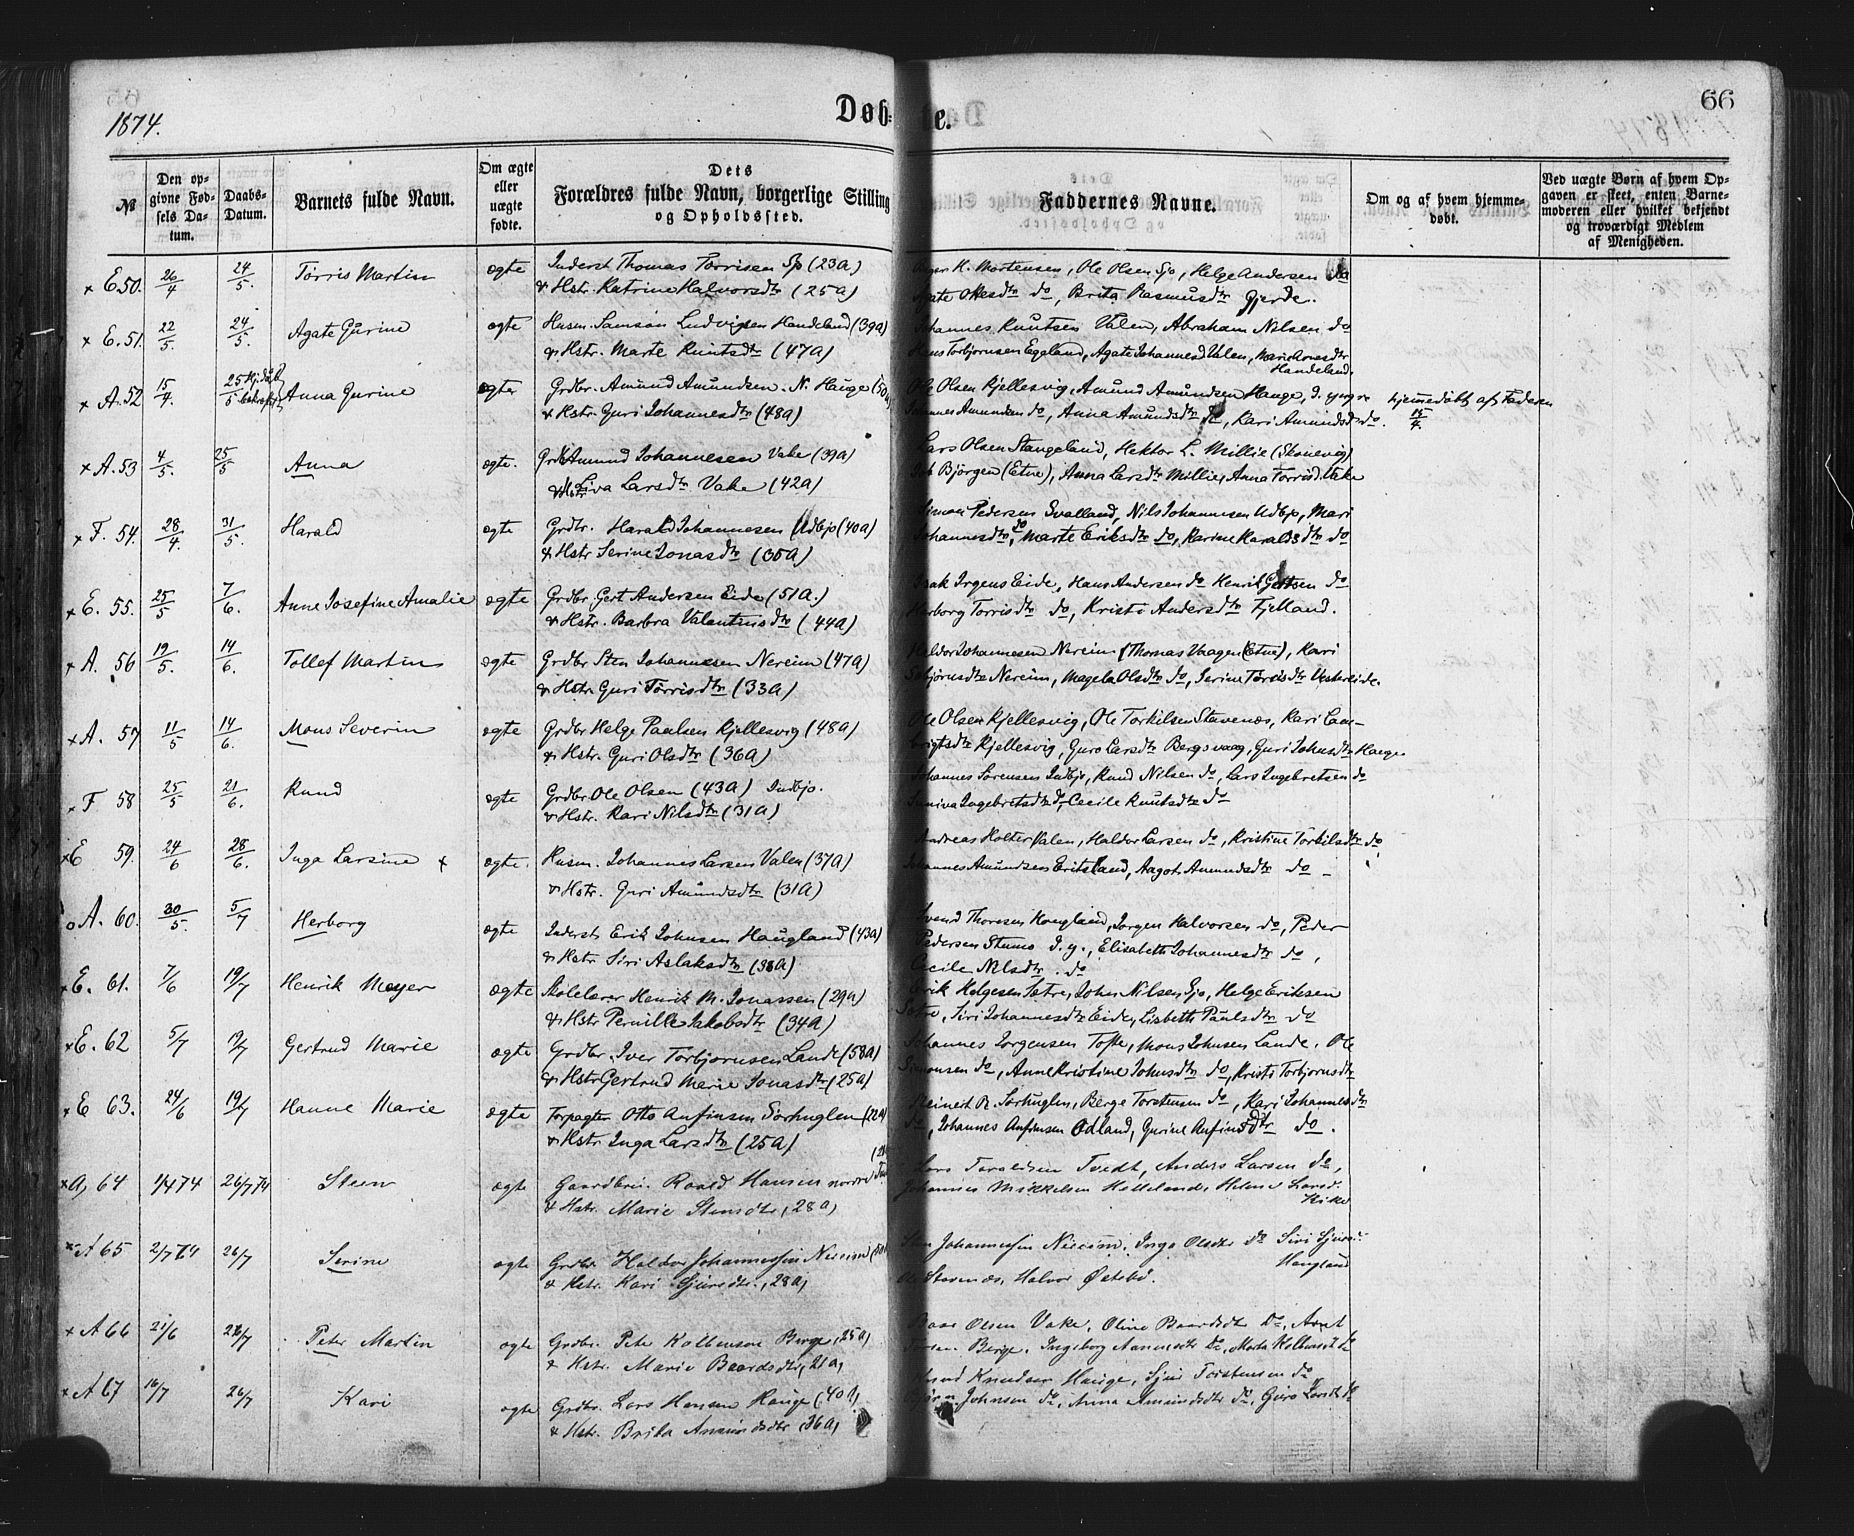 1874.
Døb-
te.
66
№
Den op-
givne Fød-
sels Da-
tum.
Daabs-
Datum.
Barnets fulde Navn.
Om ægte
eller
uægte
fødte.
Dets
Forældres fulde Navn, borgerlige Stilling
og Opholdssted.
Faddernes Navne.
Om og af hvem hjemme-
døbt.
Ved uægte Børn af hvem Op-
gaven er skeet, enten Barne-
moderen eller hvilket bekjendt
og troværdigt Medlem
af Menigheden.
x E. 50. 26/4 24/5. Tørris Martin ægte Inderst Thomas Tørrisen Sjo (23a)
& Hstr. Katrine Halvorsdtr (25a)
H. Mortensen, Ole Olsen Sjo, Helge Andersen do
Agate Ottesdtr do, Brita Rasmusdtr Gjerde.
x E. 51. 22/5. 24/5. Agate Gurine ægte Husm. Samson Ludvigsen Handeland (39a)
& Hstr. Marte Knutsdtr (47a)
Johannes Knutsen Valen, Abraham Nilsen do
Hans Torbjørnsen Egeland, Agate Johannesd Valen, Mari
Handeland.
x A. 52 15/4. 25/5 Anna Gurine ægte Grdbr. Amund Amundsen N. Hauge
& Hstr. Guri Johannesdtr (48a)
Ole Olsen Kjellesvig, Amund Amundsen Hauge, d. yngre
Johannes Amundsen do, Anna Amundsdtr do, Kari Amundsdtr do.
hjemmedøbt af Faderen
15/4.
x A. 53 4/5. 25/5 Anna ægte. Grdbr Amund Johannesen Vake (39a)
& Hstr Siva Larsdtr Vake (42a)
Lars Olsen Stangeland, Hektor L. Millie (Skonevig)
Bjørgen (Etne), Anna Larsdtr Millie, Anna Torrisd. Vake
x F. 54. 28/4. 31/5. Harald ægte Grdbr. Harald Johannesen Udbjo (40a)
& Hstr Serine Jonasdtr (35a)
Simon Pedersen Svalland, Nils Johannesen Udbjo, Mari
Johannesdtr do, Marte Eriksdtr do, Karine Haraldsdtr do
x E. 55. 25/5 7/6. Anne Josefine Amalie ægte Grdbr. Gert Andersen Eide (51a.)
& Hstr. Barbra Valentinsdtr (44a)
Isak Irgens Eide, Hans Andersen do Henrik Gertsen do
Herborg Torrisdtr do, Kristi Andersdtr Fjelland.
x A. 56 19/5. 14/6. Tollef Martin ægte Grdbr Sten Johannesen Nereim (47a)
& Hstr Guri Tørrisdtr (33a)
Haldor Johannesen Nereim, Thomas Vaagen (Etne), Kari
Nereim, Magela Olsdtr do, Serine Tørrisdtr Vestereide.
x A. 57 11/5 14/6. Mons Severin ægte Grdbr Helge Paulsen Kjellesvig (48a)
& Hstr. Guri Olsdtr (36a)
Ole Olsen Kjellesvig, Ole Torkilsen Stavenæs, Kari Lam-
brigtsdtr Kjellesvig, Guro Larsdtr Bergsvaag, Guri Johnsdtr Hauge
x F 58 25/5 21/6. Knud ægte Grdbr Ole Olsen (43a) Indbjo.
& Hstr. Kari Nilsdtr (31a)
Johannes Sørensen Indbjo, Knud Nilsen do, Lars Ingebretsen do
Suniva Ingebretsdtr do, Cecile Knutsdtr do
x E 59. 24/6 28/6. Inga Larsine x ægte. Husm. Johannes Larsen Valen (37a)
& Hstr. Guri Amundsdtr (31a)
Andreas Holter Valen, Haldor Larsen do, Kristine Torkilsdtr do,
Johannes Amundsen Eritsland, Aagot Amundsdtr do -
o A. 60. 30/5. 5/7 Herborg ægte Inderst Erik Johnsen Haugland (43a)
& Hstr Siri Aslaksdtr (38a)
Svend Thoresen Haugland, Jørgen Halvorsen do, Peder
Pedersen Stumo d. y., Elisabeth Johannesdtr do,
Cecile Nilsdtr. do
x E. 61. 7/6 19/7 Henrik Meyer ægte Skolelærer Henrik M. Jonassen (29a)
& Hstr Pernille Jakobsdtr (34a)
Erik Helgesen Sætre, John Nilsen Sjo, Helge Eriksen
Sætre, Siri Johannesdtr Eide, Lisbeth Paulsdtr do
x E. 62 5/7 19/7 Gertrud Marie ægte Grdbr. Iver Torbjørnsen Lande (58a)
& Hstr Gertrud Marie Jonasdtr (25a)
Johannes Jørgensen Tofte, Mons Johnsen Lande, Ole
Simonsen do, Anne Kristine Johnsdtr do, Kristi Torbjørnsdtr
x E 63. 24/6 19/7 Hanne Marie ægte Torpagter Otto Anfinsen Sørhuglen (22a)
& Hstr Inga Larsdtr (25a)
Reinert R. Sørhuglen, Børge Torstensen do, Kari Johannesdtr
do, Johannes Anfinsen Ødland, Gurine Anfinsdtr do.
x A, 64 1/4 74 26/7 74 Steen ægte Gaardbru. Roald Hansen nordre
& Hstr. Marie Stensdtr, 28 a,
Lars Taraldsen Tvedt, Anders Larsen do,
Johannes Mikkelsen Helleland, Helene Larsd.
x A 65 2/7 74 26/7 Serine ægte Grdbr. Haldor Johannessen Nereim
& Hstr. Kari Sjursdtr., 28 a,
Sten Johannessen Nereim, Inga Olsdtr do Siri Sjursd.
Haugland
Ole Stavenæs, Halvor Østebø.
x A 66 21/6 26/7 Peter Martin ægte Grdbr. Peter Kolbenson Berge, 25 a,
& Hstr. Marie Baardsdtr, 21 a,
Olsen Vake, Oline Baardsdtr do,
Berge, Ingeborg do, Marta do
x A 67 16/7 26/7 Kari ægte Grdbr. Lars Hansen Hauge (40 a,
& Hstr. Brita Amundsdtr (36 a,
Knudsen Hauge, Sjur Torstensen do
Johnsen do, Anna Amundsdtr do, Guro Larsdtr do